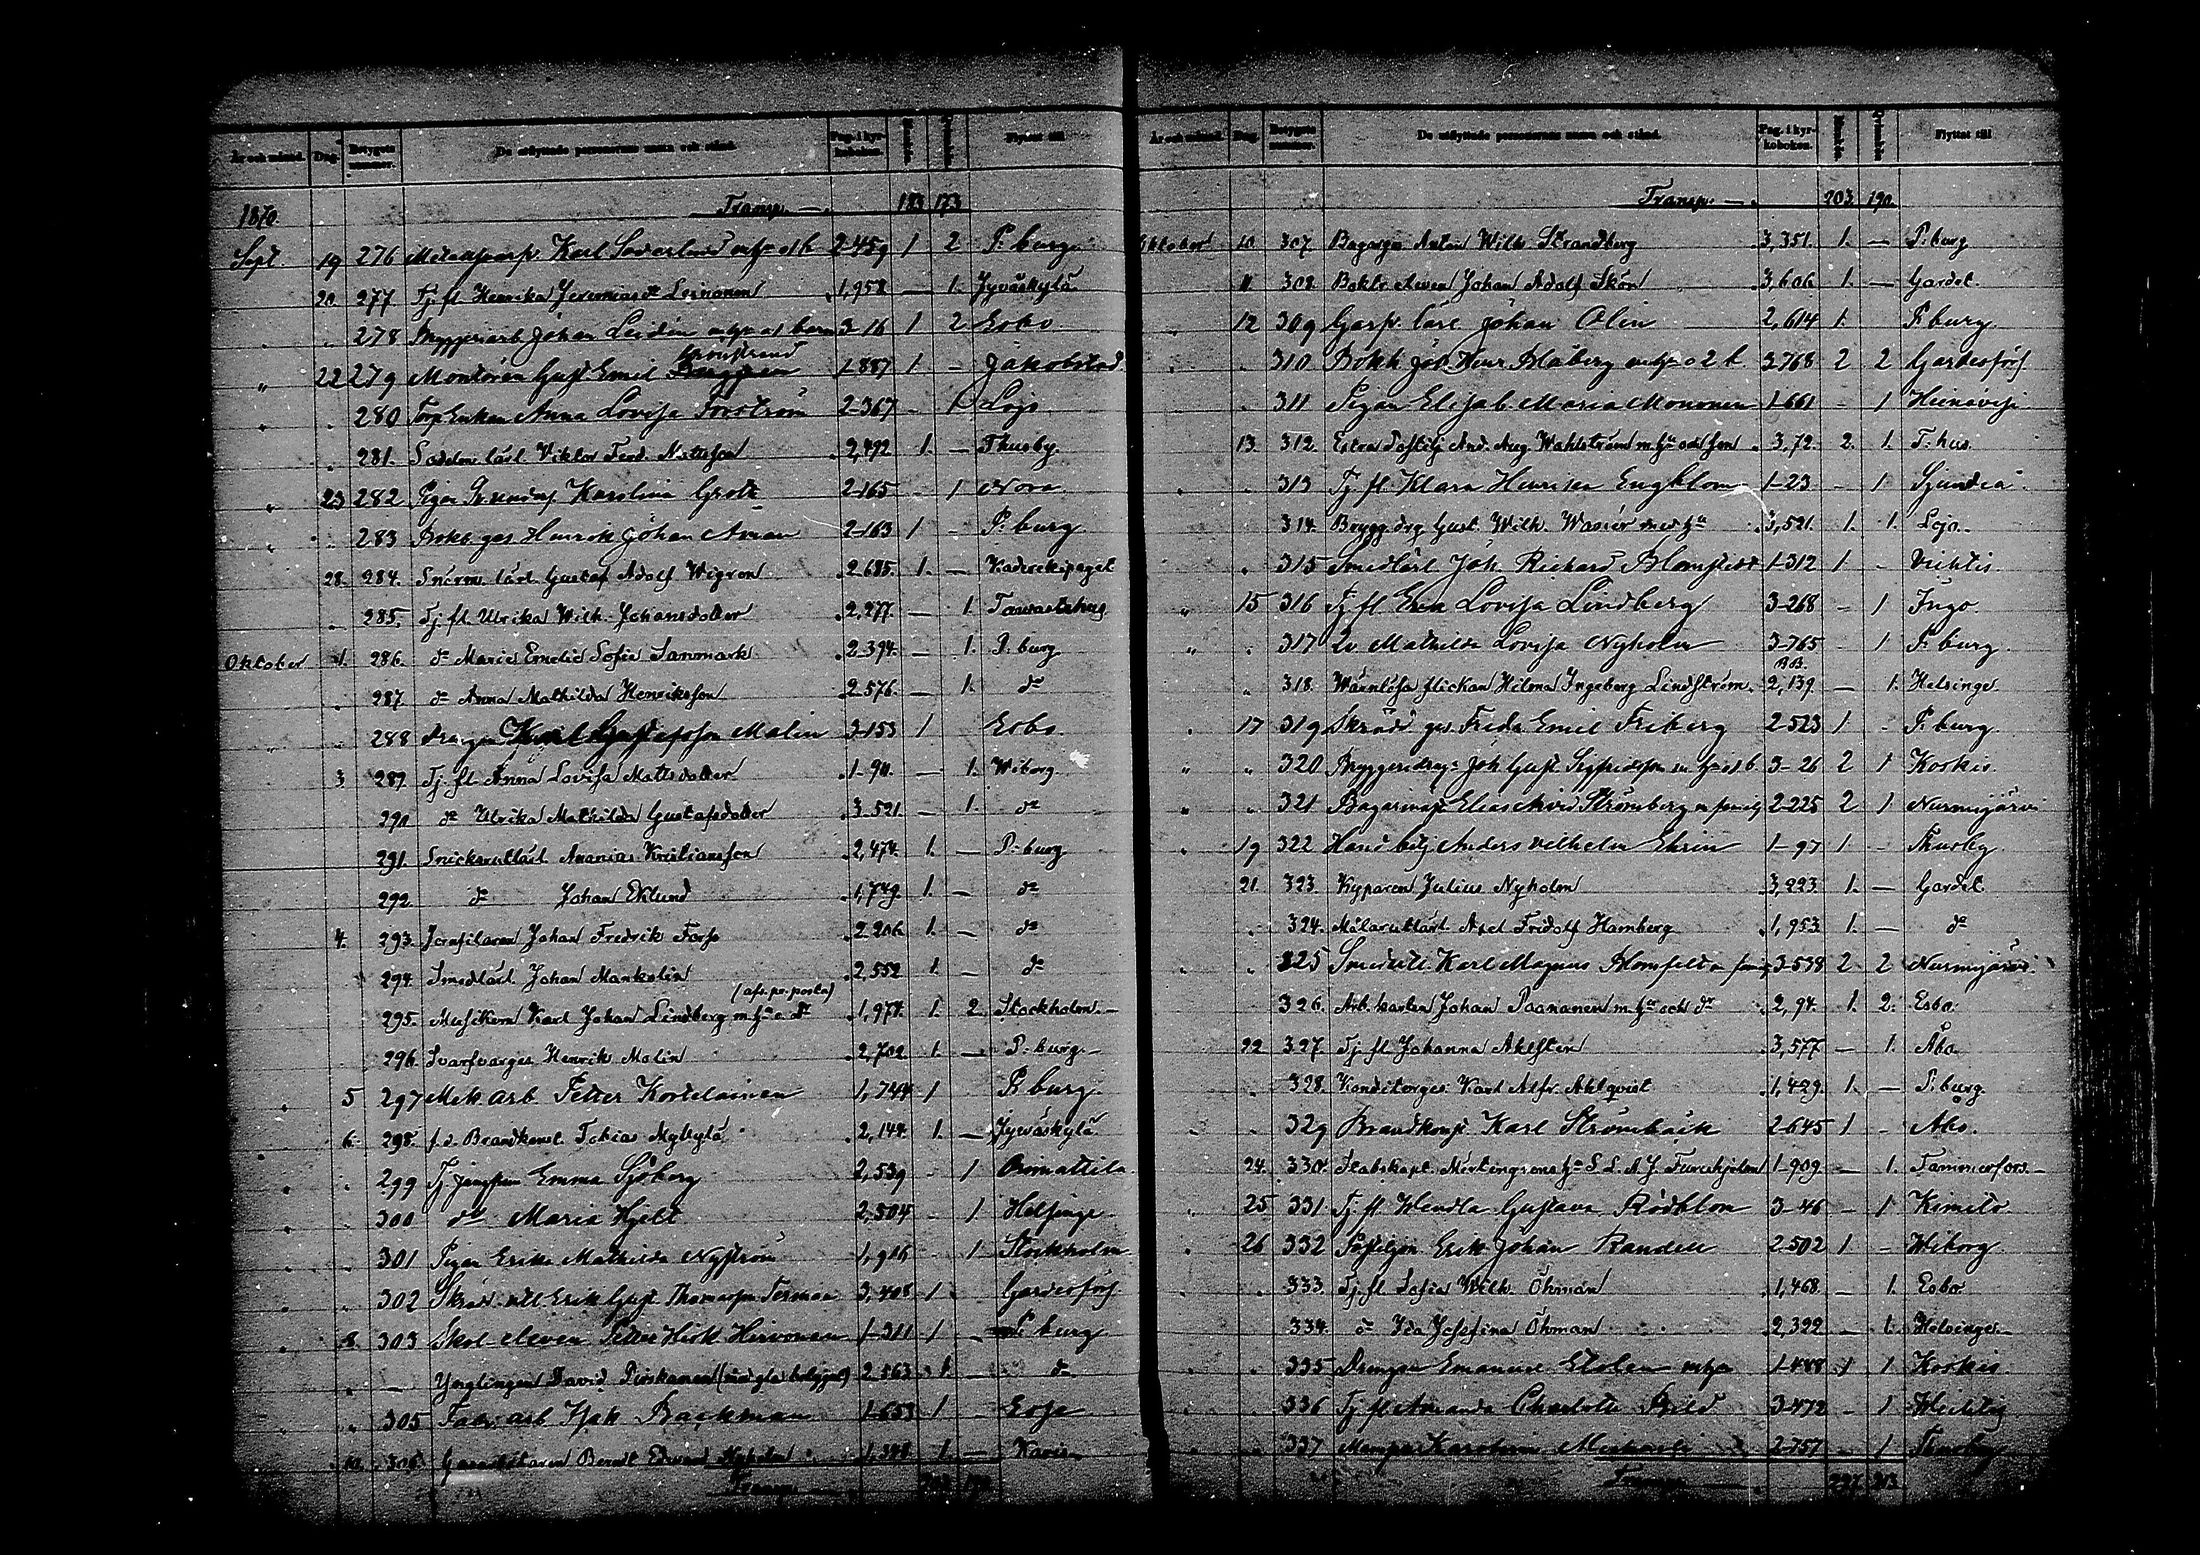 År och månad. Dag. Betygets nummer. De utflyttade personernas namn och stånd. Pag. i kyrkoboken. Mankön. Qvinkön. Flyttat till
1870. Transp. 183 173
Sept. 19 276 Karl Söderlund 2-459 1 2 P:burg
20. 277. Tj. fl. Henrika Jeremiasdr Leinonen 1,958 — 1. Jyväskylä
278 Johan Lindén 3-16 1 2 Esbo
22 279 Montören Gust Emil 1-887 1 - Jakobstad
280 Anna Lovisa Forström 2-367 - 1 Lojo
281. Viktor Ferd. Mattsson 2,472 1. — Thusby
23 282 Pigan Karolina Grott 2-165 - 1 Nora
283 Henrik Johan Åman 2-163 1 - P:burg
28. 284. lärl. Gustaf Adolf Wigren 2-685. 1. —
285. Tj. fl. Ulrika Wilh. Johansdotter 2,277. — 1. Tawastehus
Oktober 1. 286. do Maria Emelie Sofia Sanmark 2-394. — 1. P:burg
287. do Anna Mathilda Henriksson 2-576. — 1. do
288 Karl Gustafsson Malin 3-153 1 Esbo
3 289. Tj. fl. Anna Lovisa Mattsdotter 1-90. — 1. Wiborg
290. do Ulrika Mathilda Gustafsdotter 3-521. — 1. do
291. Ananias Kristiansson 2,474. 1. — P:burg
292. do Johan Eklund 1,749. 1. — do
4. 293. Jernfilaren Johan Fredrik Forss 2-206. 1. — do
294. Smedlärl. Johan Mankelin 2,552 1. — do
295. Musikern Karl Johan Lindberg m. hu o. dr (afs. pr. posta) 1,977. 1. 2. Stockholm.
296. Svarfvarges. Henrik Malin 2,702 1. — P:burg.
5 297 Mek arb. Petter Kortelainen 1,744 1 P:burg.
6. 298. f.d. Brandkonst. Tobias Myllylä 2,144. 1. — Jyväskylä
299 Tj. jungfrun Emma Sjöberg 2,539 - 1 Orimattila
300 do Maria Hjelt 2,504 - 1 Helsinge
301 Pigan Erika Mathilda Nyström 1,916 - 1 Stockholm
302 Erik Gust Thomasson Ferman 3,408 1 Gardesförs.
8. 303 Skol-eleven Petter Hirvonen 1-311 1 - P:burg
— Ynglingen David Pirskanen 2-563 1 — do
305 Fabr. arb. Isak Backman 1-653 1 -
10. 306. Berndt Edvard Nyholm 1,348 1. — Karis
Transp.
År och månad. Dag. Betygets nummer. De utflyttade personernas namn och stånd. Pag. i kyrkoboken. Mankön. Qvinkön. Flyttat till
Transp. 203 190.
Oktober 10 307. Bagarges. Anton Wilh. Strandberg 3,351. 1. — P:burg
11 308. Boktr. eleven Johan Adolf Skön 3,606. 1. — Gardet.
12 309 Carl Johan Olin 2,614 1. P:burg
310 Bokh. Joh. Henr. Blåberg 3-768 2 2 Gardesförs.
311 Pigan Elisab. Maria Mononen 1-661 - 1 Heinävesi
13. 312. Extra Postilj. And. Aug. Wahlström m. hu och son 3,72. 2. 1. T:hus
313 Tj. fl. Klara Henrika Engblom 1-23 - 1 Sjundeå
314. Bryggdrg Gust. Wilh. med hu 3,521. 1. 1. Lojo.
315 Smedlärl. Joh. Richard Blomstedt 1-312 1 - Vichtis.
15 316 Tj. fl. Eva Lovisa Lindberg 3-268 - 1 Ingo.
317 Qv. Mathilda Lovisa Nyholm 3-765 - 1 P:burg.
318. Wärnlösa flickan Hilma Ingeborg Lindström. BB. 2,139. — 1. Helsinge.
17 319 Skräd. ges. Emil Friberg 2-523 1 - P:burg.
320 Joh Gust Sigfridsson 3-26 2 1 Koskis.
321 Strömberg m familj 2-225 2 1 Nurmijärvi
19 322 Anders Vilhelm Ehrin 1-97 1 - Thusby
21. 323. Kyparen Julius Nyholm 3,223. 1. — Gardet.
324. Målarelärl. Axel Fridolf Hamberg 1,953. 1. — do
325 Karl Magnus Blomfelt m familj 3-538 2 2 Nurmijärvi.
326. Arb. karlen Johan Paananen m. hu och dr 2,94. 1. 2. Esbo.
22 327. Tj. fl. Johanna Ahlsten 3,577 — 1. Åbo
328. Konditorges. Karl Alfr. Ahlqvist 1,429. 1. — P:burg.
329 Brandkonst. Karl Strömbäck 2-645 1 - Åbo.
24. 330. Stabskapt. 1-909. — 1. Tammerfors.
25 331 Tj. fl. Wendla Gustava Rödblom 3-46 - 1 Kimito
26 332 Postiljon Erik Johan Randell 2-502 1 - Wiborg
333. Tj. fl. Sofia Wilh. Öhman 1,468. - 1. Esbo
334. do Ida Josefina Öhman 2,322 — 1. Helsinge.
335 Drengen Emanuel 1-448 1 1 Koskis
336 Tj. fl. Amanda Charlotta Bild 3-472 - 1 Wichtis
337 2-757 - 1 Thusby
Transp.